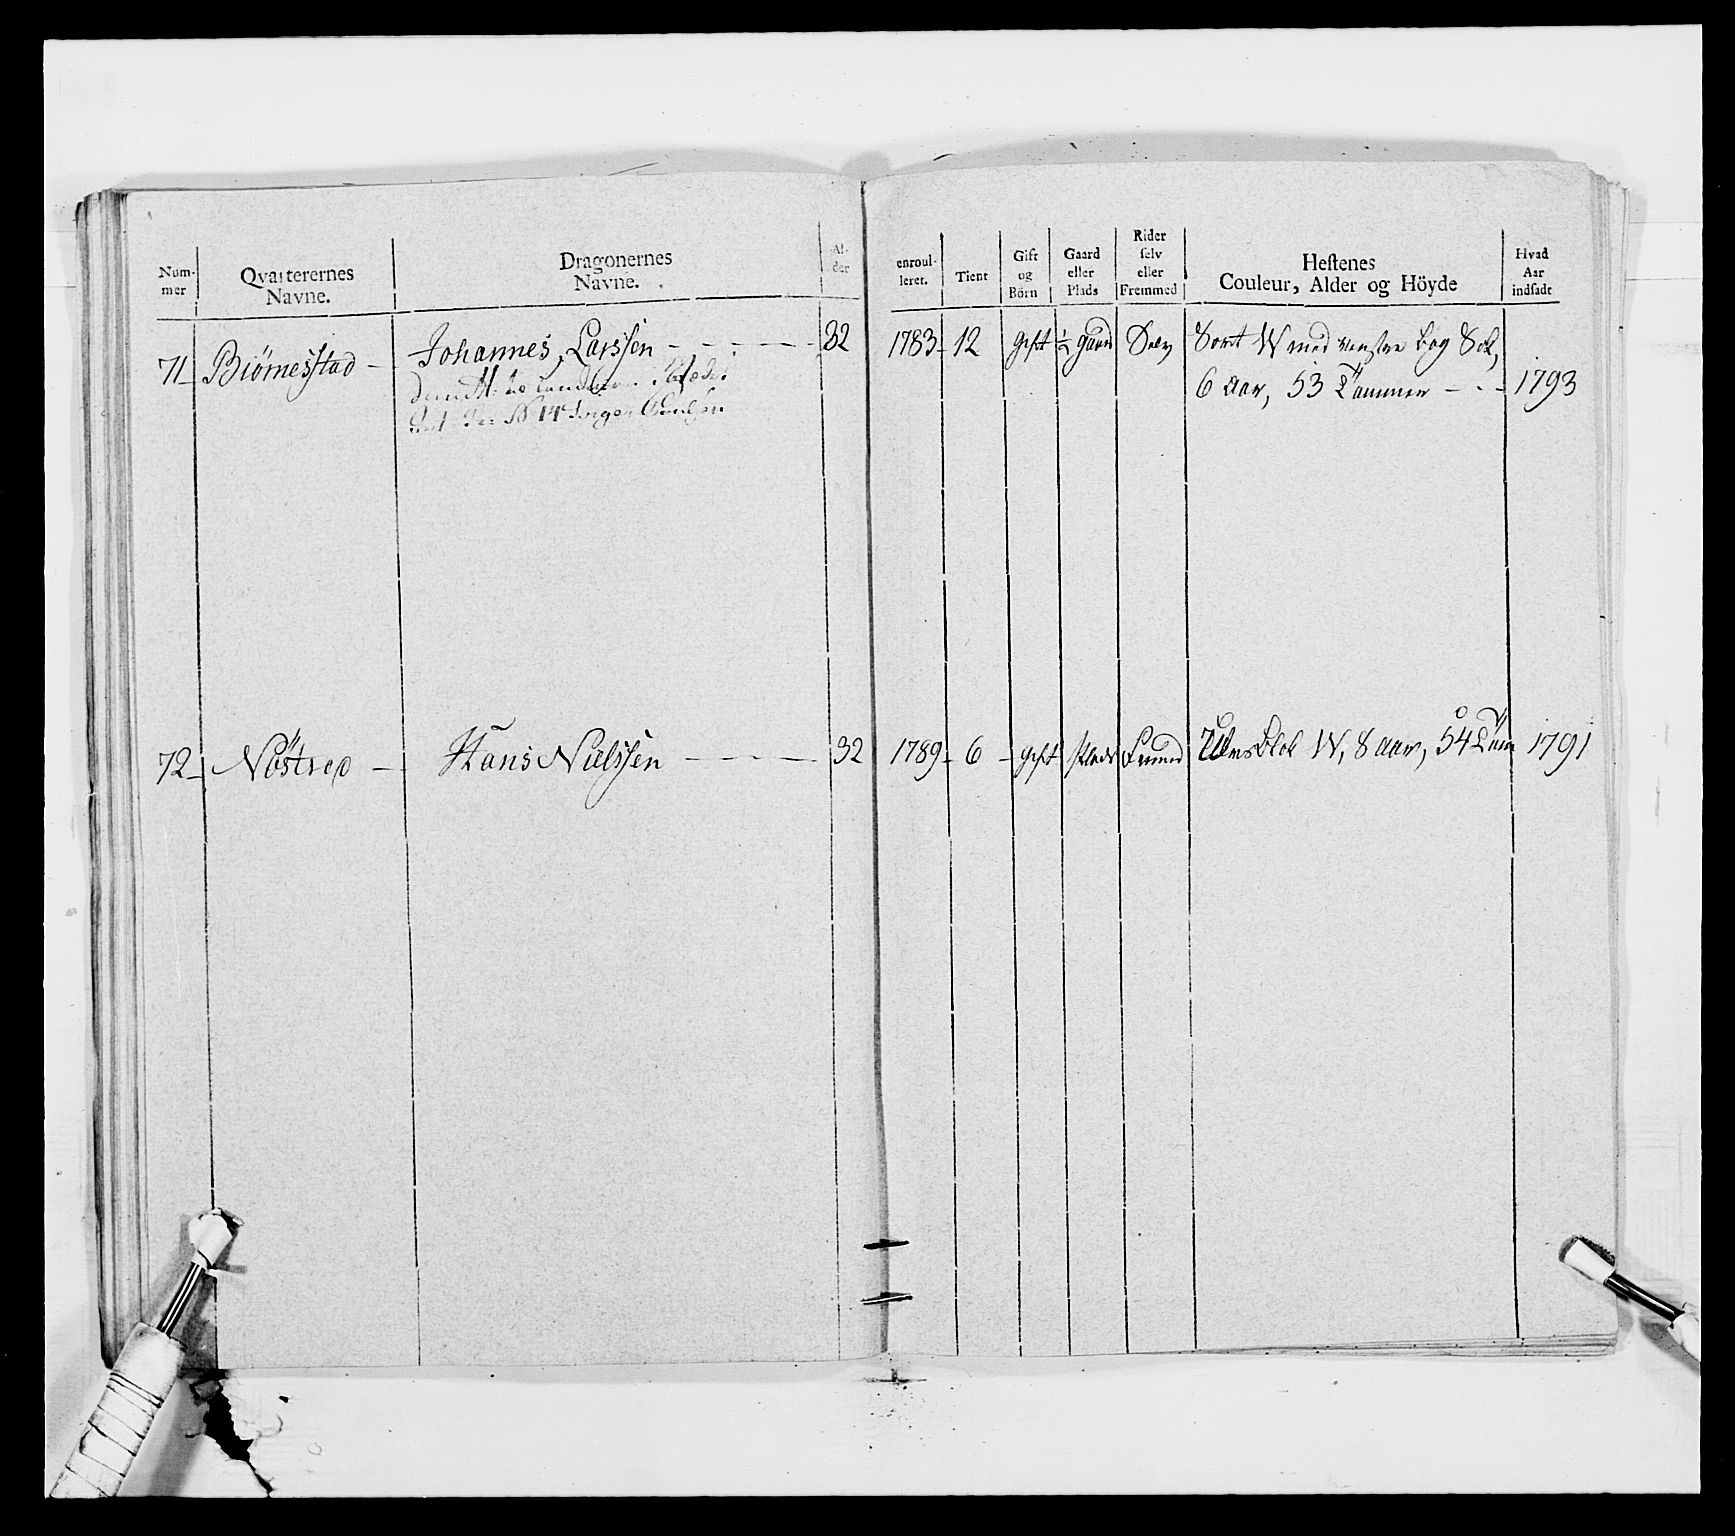 Num-
mer
Qvarterernes
Navne.
Dragonernes
Navne.
Al-
der
enroul-
leret.
Tient
Gift
og
Börn
Gaard
eller
Plads
Rider
selv
eller
Fremmed
Hestenes
Couleur, Alder og Höyde
Hvad
Aar
indsadt
71 Biörnestad Johannes Larssen 32 1783 12 gift ½ gaard Selv Sort W med venstre bag Sok,
6 Aar, 53 Tommer 1793
No 14
72 Nöstred Hans Nielssen 32 1789 6 gift Plads Fremd W, 8 aar, 54 Tom 1791